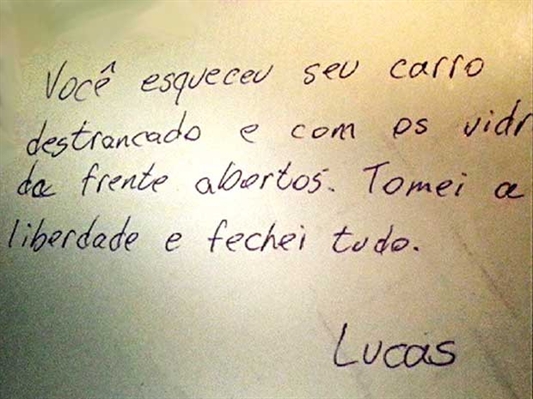 Você esqueceu seu carro
destrancado e com os vidr
da frente abertos. Tomei a
liberdade e fechei tudo.
Lucas